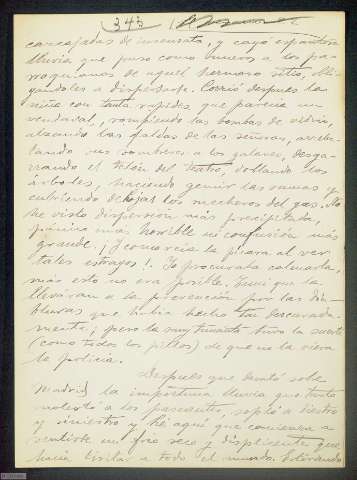 343
carcajadas de insensata, y cayó espantosa
lluvia que puso como nuevos a los pa-
rroquianos de aquel hermoso sitio, obli-
gándoles a dispersarse. Corrió después la
niña con tanta rapidez que parecía un
vendaval, rompiendo las bombas de vidrio,
alzando las faldas de las señoras, arreba-
tando los sombreros a los galanes, desga-
rrando el telón del teatro, doblando los
árboles, haciendo gemir las ramas y
cubriendo de hojas los mecheros del gas. No
he visto dispersion más precipitada,
pánico más horrible ni confusión más
grande. ¡Y como reía la pícara al ver
tales estragos!. Yo procuraba calmarla,
mas esto no era posible. Temí que la
llevaran a la prevención por las dia-
bluras que había hecho tan descarada-
mente; pero la muy tunanta tuvo la suerte
(como todos los pillos) de que no la viera
la policía.
Después que derramó sobre
Madrid la importuna lluvia que tanto
molestó a los paseantes, sopló a diestro
y siniestro y hé aquí que comienza a
sentirse un frío seco y displicente que
hacía tiritar a todo el mundo.